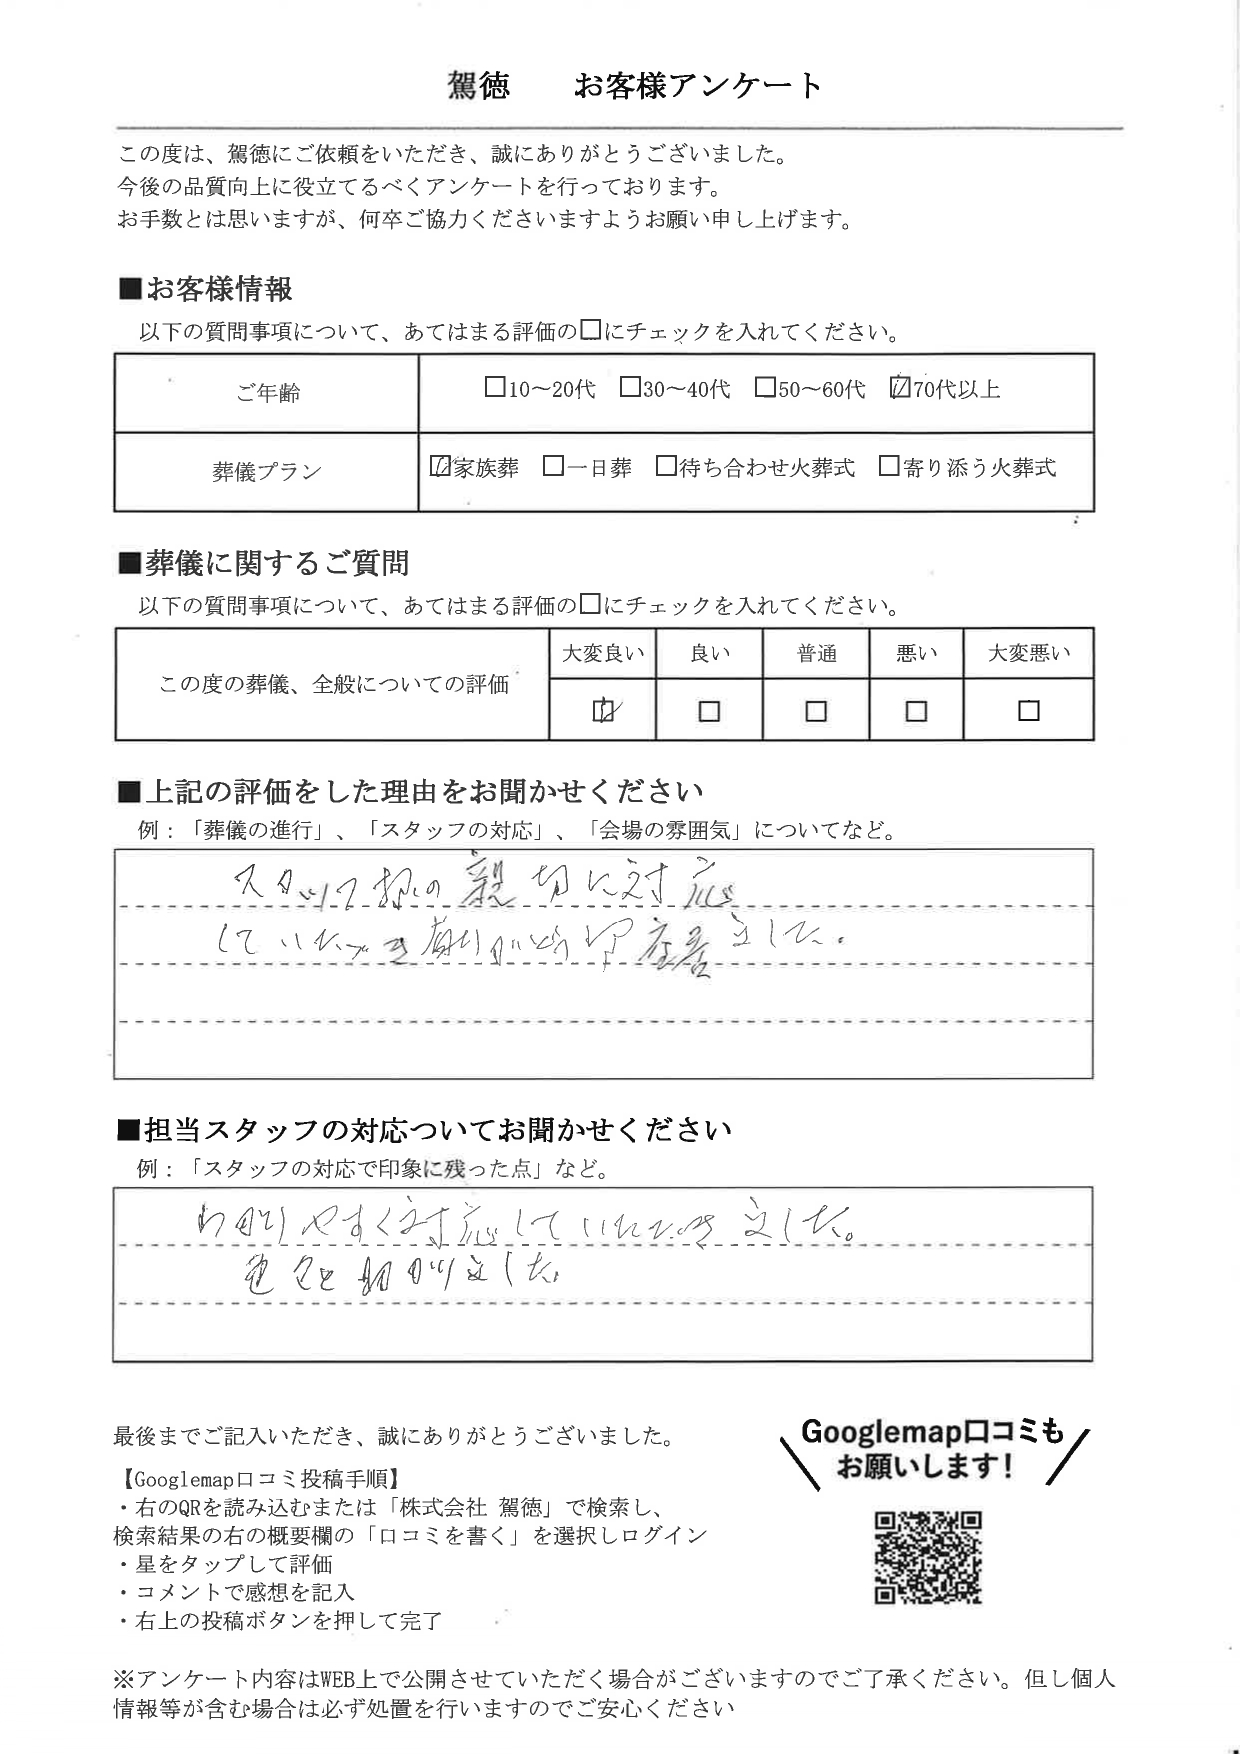 駕徳　　お客様アンケート
この度は、駕徳にご依頼をいただき、誠にありがとうございました。
今後の品質向上に役立てるべくアンケートを行っております。
お手数とは思いますが、何卒ご協力くださいますようお願い申し上げます。
■お客様情報
以下の質問事項について、あてはまる評価の□にチェックを入れてください。
ご年齢　□10～20代　□30～40代　□50～60代　☑70代以上
葬儀プラン　☑家族葬　□一日葬　□待ち合わせ火葬式　□寄り添う火葬式
■葬儀に関するご質問
以下の質問事項について、あてはまる評価の□にチェックを入れてください。
大変良い　良い　普通　悪い　大変悪い
この度の葬儀、全般についての評価
☑　□　□　□　□
■上記の評価をした理由をお聞かせください
例：「葬儀の進行」、「スタッフの対応」、「会場の雰囲気」についてなど。
スタッフ様の親切に対応
していただき有りがとう御座居ました。
■担当スタッフの対応ついてお聞かせください
例：「スタッフの対応で印象に残った点」など。
わかりやすく対応していただきました。
色々と助かりました。
最後までご記入いただき、誠にありがとうございました。
【Googlemap口コミ投稿手順】
・右のQRを読み込むまたは「株式会社 駕徳」で検索し、
検索結果の右の概要欄の「口コミを書く」を選択しログイン
・星をタップして評価
・コメントで感想を記入
・右上の投稿ボタンを押して完了
Googlemap口コミも
お願いします！
※アンケート内容はWEB上で公開させていただく場合がございますのでご了承ください。但し個人
情報等が含む場合は必ず処置を行いますのでご安心ください